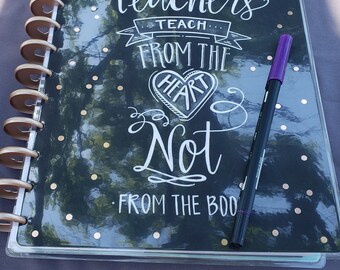 teachers
TEACH
FROM THE
HEART
Not
·FROM THE BOO